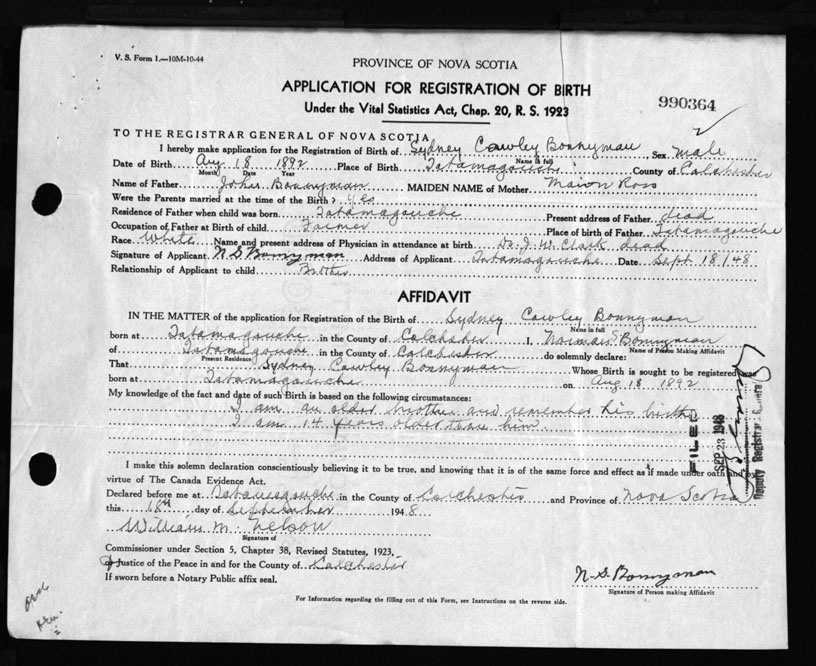 V. S. Form 1.—10M-10-44
PROVINCE OF NOVA SCOTIA
APPLICATION FOR REGISTRATION OF BIRTH
Under the Vital Statistics Act, Chap. 20, R. S. 1923
990364
TO THE REGISTRAR GENERAL OF NOVA SCOTIA
I hereby make application for the Registration of Birth of Sydney Cowley Bonnyman Sex male
Name in full
Date of Birth Aug 18 1892 Place of Birth Tatamagouche County of Colchester
Month Date Year
Name of Father John Bonnyman MAIDEN NAME of Mother Maion Ross
Were the Parents married at the time of the Birth? Yes
Residence of Father when child was born Tatamagouche Present address of Father dead
Occupation of Father at Birth of child Farmer Place of birth of Father Tatamagouche
Race White Name and present address of Physician in attendance at birth Dr. J. W. Clark dead
Signature of Applicant N S Bonnyman Address of Applicant Tatamagouche Date Sept 18/48
Relationship of Applicant to child Brother
AFFIDAVIT
IN THE MATTER of the application for Registration of the Birth of Sydney Cowley Bonnyman
Name in full
born at Tatamagouche in the County of Colchester I, Norman S Bonnyman
Name of Person Making Affidavit
of Tatamagouche in the County of Colchester do solemnly declare:
Present Residence
That Sydney Cowley Bonnyman Whose Birth is sought to be registered was
born at Tatamagouche on Aug 18 1892
My knowledge of the fact and date of such Birth is based on the following circumstances:
I am an older brother and remember his birth
I am 14 years older than him
FILED
SEP 23 1948
Deputy Registrar General
I make this solemn declaration conscientiously believing it to be true, and knowing that it is of the same force and effect as if made under oath and by
virtue of The Canada Evidence Act.
Declared before me at Tatamagouche in the County of Colchester and Province of Nova Scotia
this 18th day of September 1948
William M. Nelson
Signature of
Commissioner under Section 5, Chapter 38, Revised Statutes, 1923,
of Justice of the Peace in and for the County of Colchester
If sworn before a Notary Public affix seal.
N. S. Bonnyman
Signature of Person making Affidavit
For Information regarding the filling out of this Form, see Instructions on the reverse side.